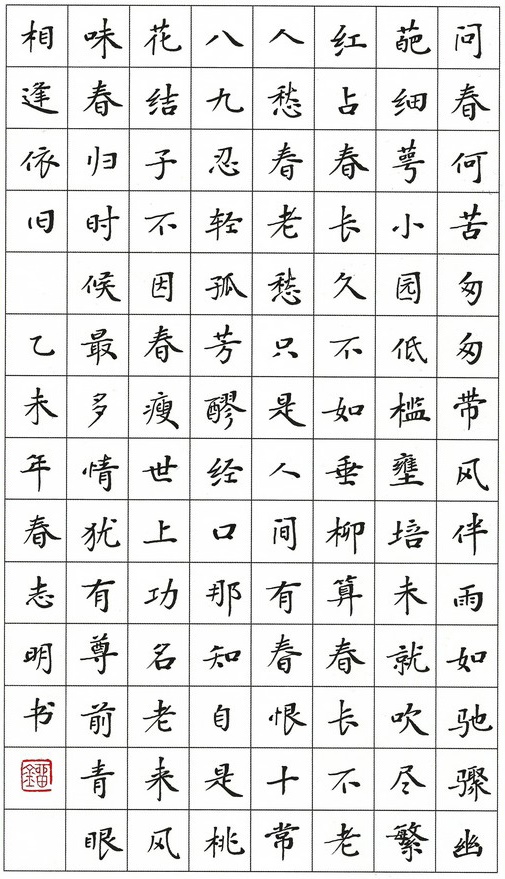 问春何苦匆匆带风伴雨如驰骤幽
葩细萼小园低槛壅培未就吹尽繁
红占春长久不如垂柳算春长不老
人愁春老愁只是人间有春恨十常
八九忍轻孤芳醪经口那知自是桃
花结子不因春瘦世上功名老来风
味春归时候最多情犹有尊前青眼
相逢依旧 乙未年春志明书